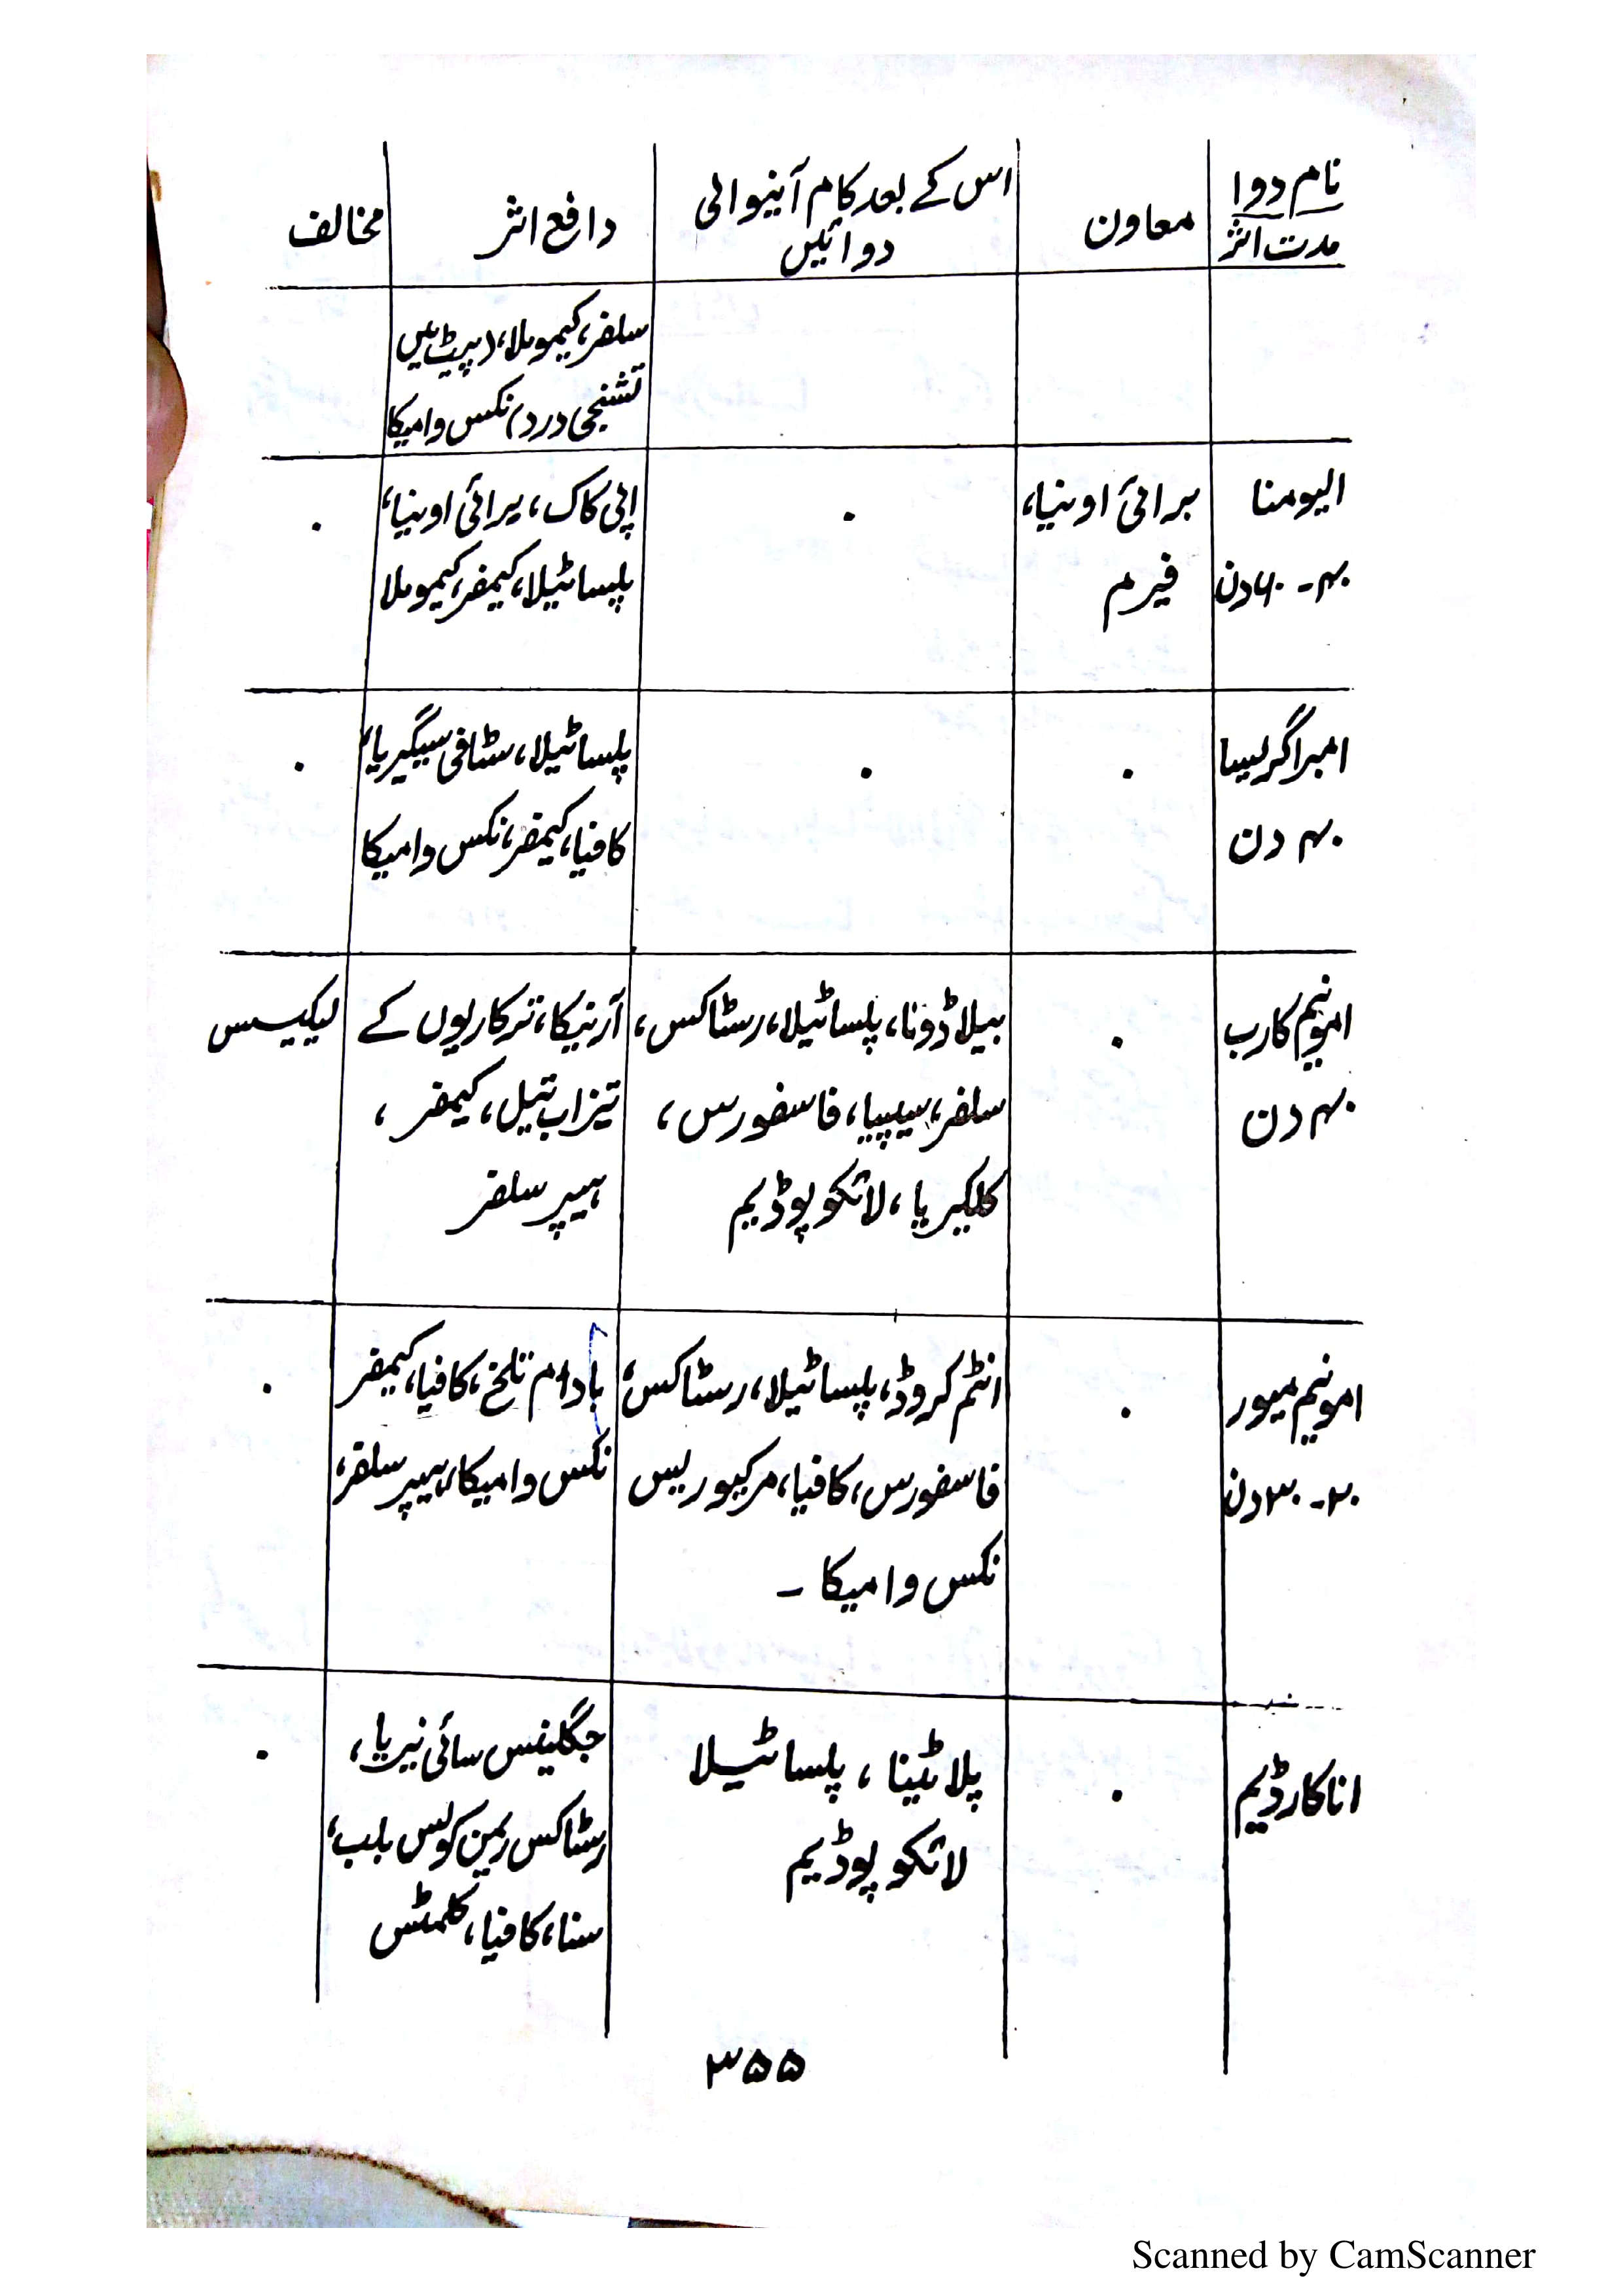 نام دوا
مدت اثر
معاون
اس کے بعد کام آنیوالی
دوائیں
دافع اثر
مخالف
سلفر، کیمو ملا، (پیٹ میں
تشنجی درد) نکس وامیکا
الیومنا
۴۰ - ۶۰ دن
برائی اونیا،
فیرم
۰
اپی کاک، برائی اونیا،
پلساٹیلا، کیمفر، کیمو ملا
۰
امبرا گریسا
۴۰ دن
۰
۰
پلساٹیلا، سٹافی سیگیریا،
کافیا، کیمفر، نکس وامیکا
۰
امونیم کارب
۴۰ دن
۰
بیلا ڈونا، پلساٹیلا، رسٹاکس،
سلفر، سیپیا، فاسفورس،
کلکیریا، لائکو پوڈیم
آرنیکا، ترکاریوں کے
تیزاب تیل، کیمفر،
ہیپر سلفر
لیکیسس
امونیم میور
۲۰ - ۳۰ دن
۰
انٹم کروڈ، پلساٹیلا، رسٹاکس،
فاسفورس، کافیا، مرکیوریس
نکس وامیکا -
بادام تلخ، کافیا، کیمفر
نکس وامیکا، ہیپر سلفر،
۰
اناکارڈیم
۰
پلاٹینا، پلساٹیلا
لائکو پوڈیم
جگلینس سائی نیریا،
رسٹاکس رینن کولس بلب،
سنا، کافیا، کلمٹس
۰
۳۵۵
Scanned by CamScanner